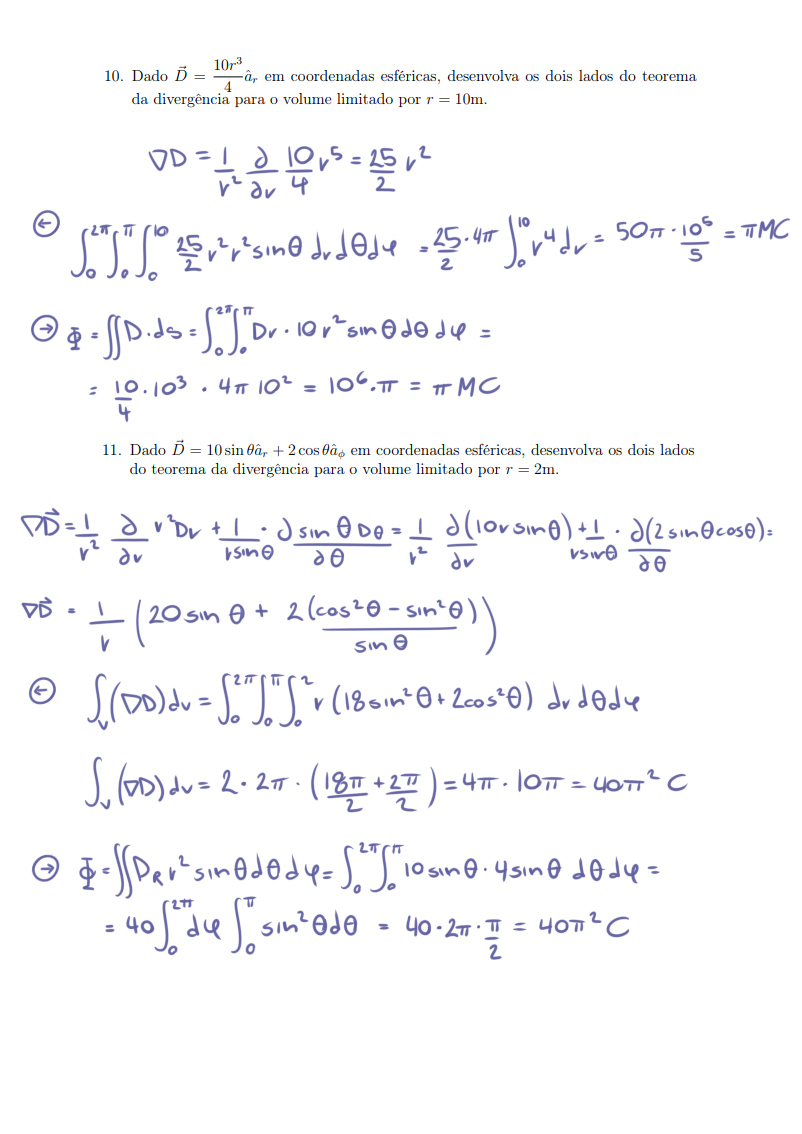 10. Dado D⃗ = 10r³/4 â_r em coordenadas esféricas, desenvolva os dois lados do teorema
da divergência para o volume limitado por r = 10m.
∇D = 1/r² ∂/∂r 10/4 r⁵ = 25/2 r²
← ∫₀^2π ∫₀^π ∫₀^10 25/2 r² r² sinθ dr dθ dφ = 25/2 · 4π ∫₀^10 r⁴ dr = 50π · 10⁵/5 = πMC
→ Φ = ∬ D · ds = ∫₀^2π ∫₀^π Dr · 10 r² sinθ dθ dφ =
= 10/4 · 10³ · 4π 10² = 10⁶ · π = π MC
11. Dado D⃗ = 10 sin θâ_r + 2 cos θâ_ϕ em coordenadas esféricas, desenvolva os dois lados
do teorema da divergência para o volume limitado por r = 2m.
∇D⃗ = 1/r² ∂/∂r r²Dr + 1/(r sinθ) · ∂ sinθ Dθ/∂θ = 1/r² ∂(10r sinθ)/∂r + 1/(r sinθ) · ∂(2 sinθ cosθ)/∂θ =
∇D⃗ = 1/r (20 sin θ + 2(cos²θ − sin²θ)/sin θ)
← ∫_v (∇D) dv = ∫₀^2π ∫₀^π ∫₀^2 r (18 sin²θ + 2cos²θ) dr dθ dφ
∫_v (∇D) dv = 2 · 2π · (18π/2 + 2π/2) = 4π · 10π = 40π² C
→ Φ = ∬ D_R r² sinθ dθ dφ = ∫₀^2π ∫₀^π 10 sinθ · 4 sinθ dθ dφ =
= 40 ∫₀^2π dφ ∫₀^π sin²θ dθ = 40 · 2π · π/2 = 40π² C